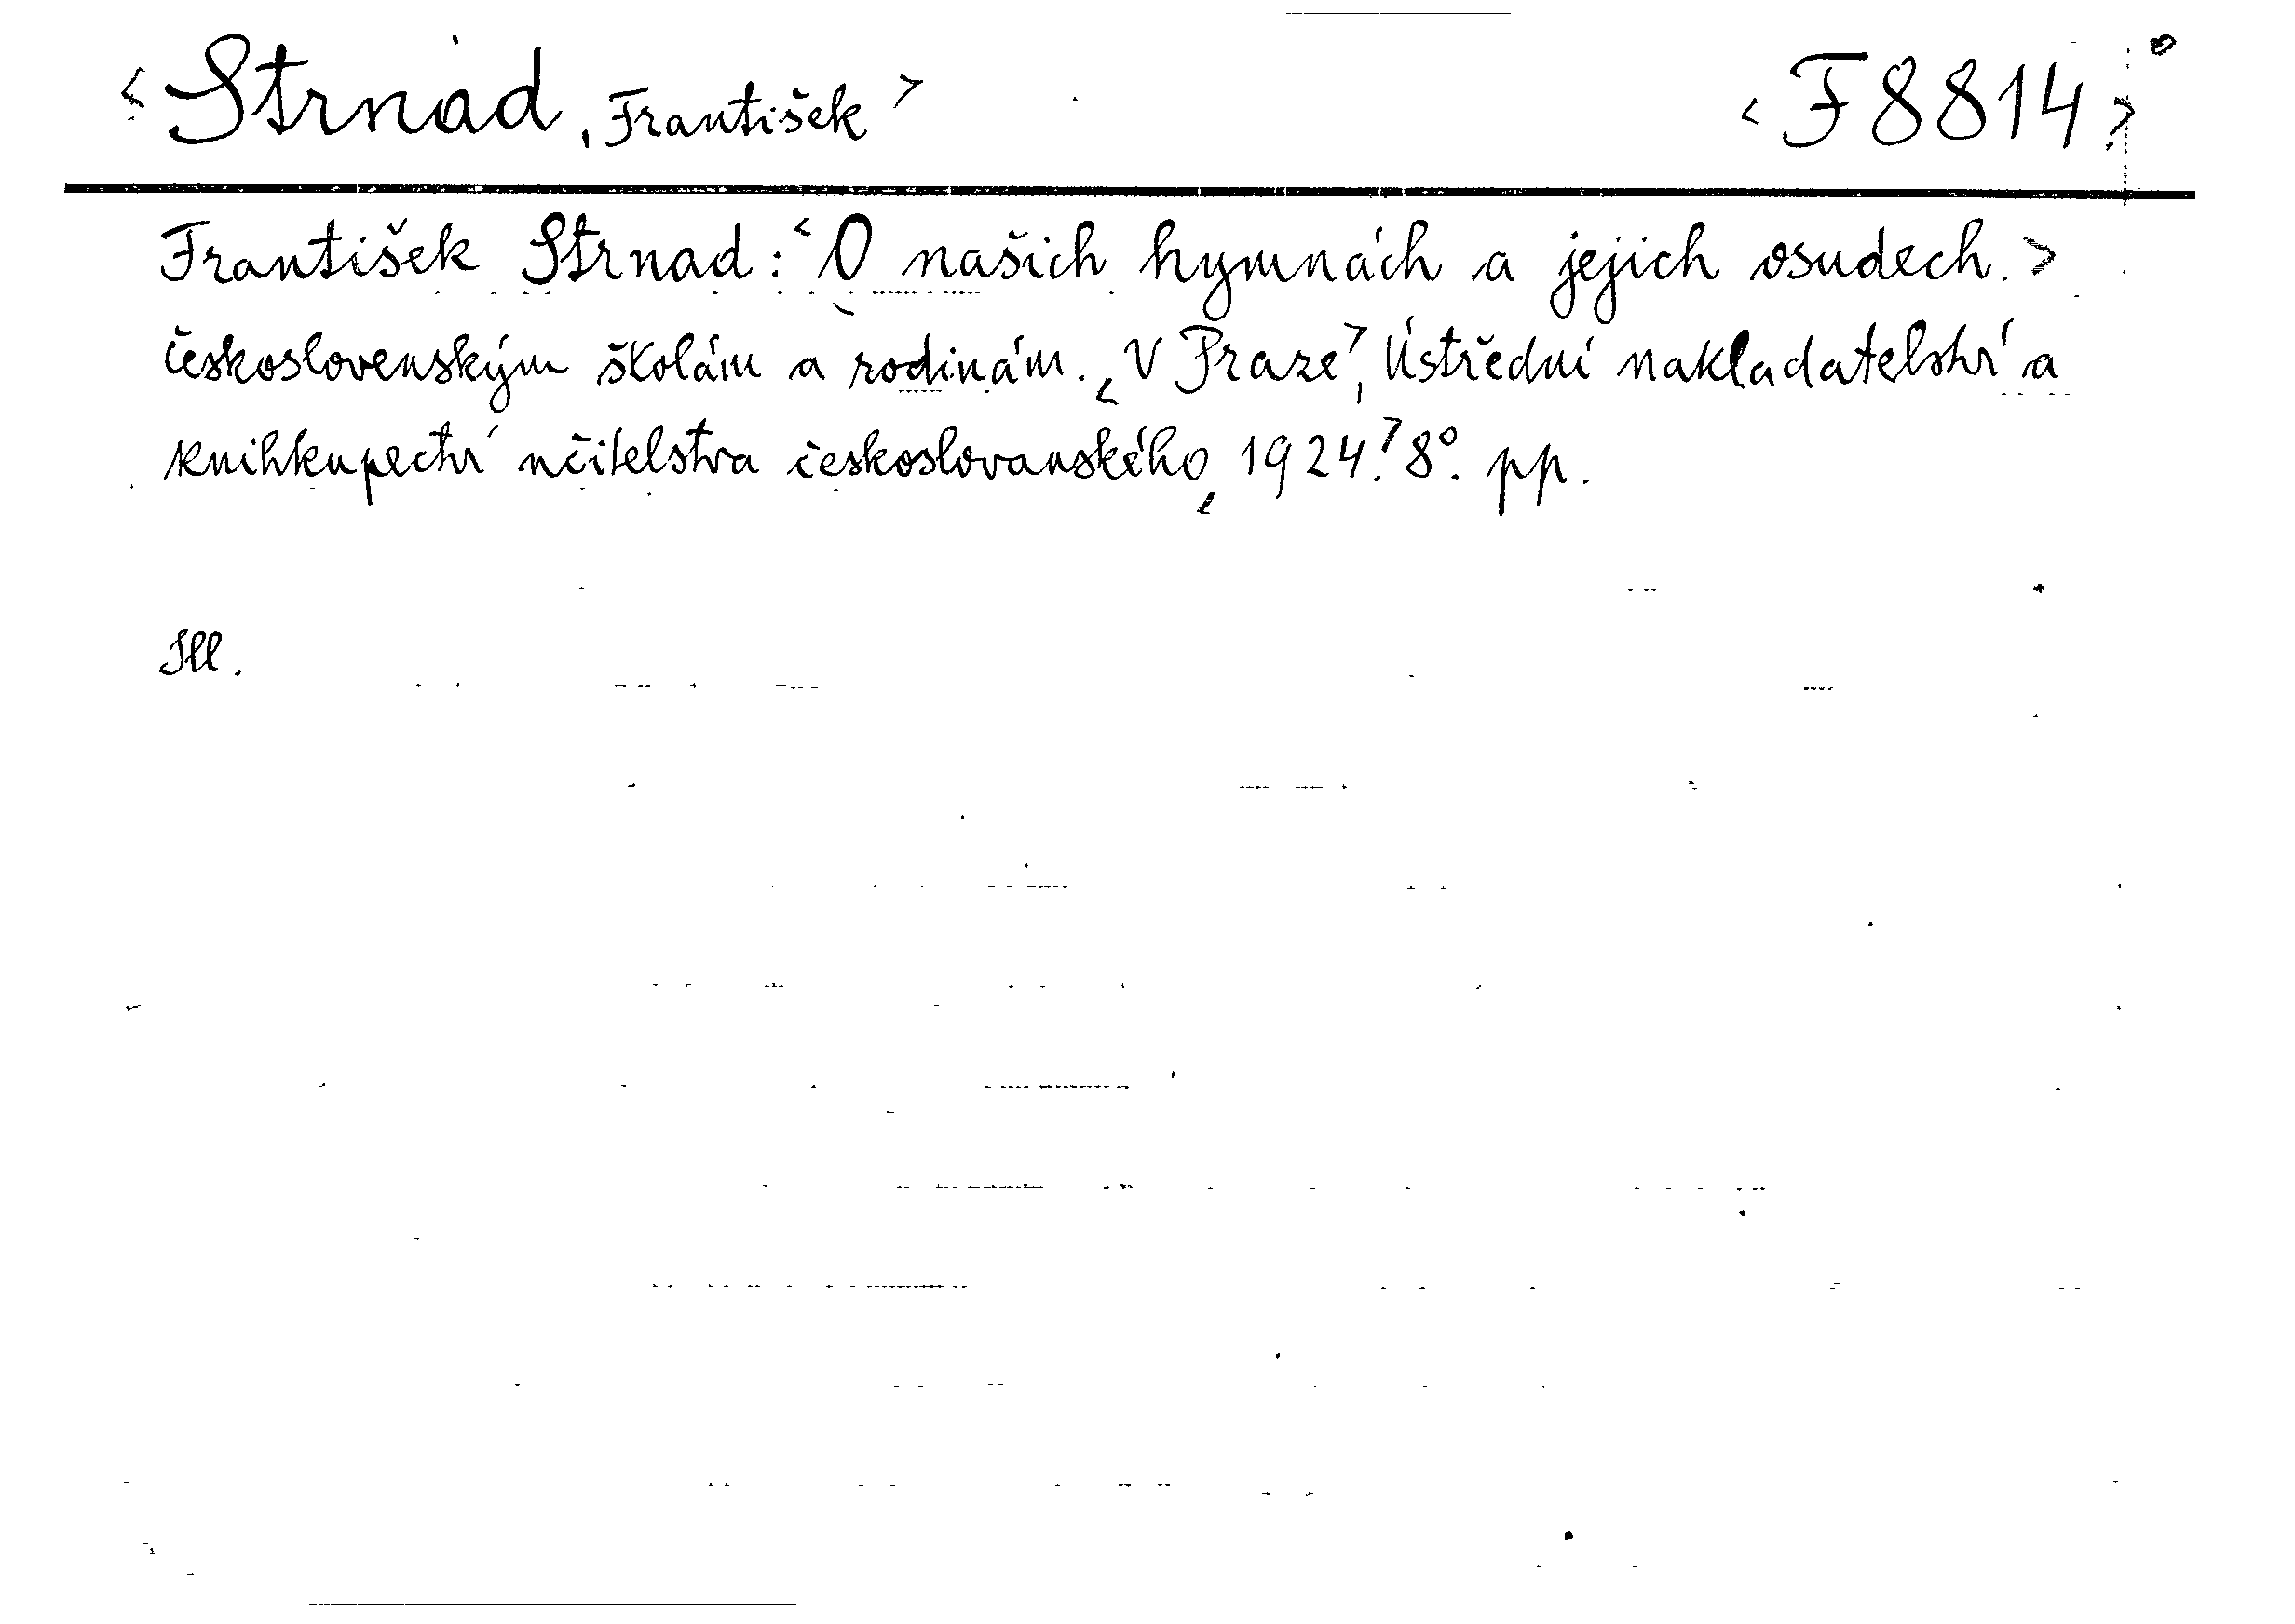 <Strnad, František> <F8814>
František Strnad: <O našich hymnách a jejich osudech.>
československým školám a rodinám. <V Praze>, Ústřední nakladatelství a
knihkupectví učitelstva českoslovanského, <1924.> 8°. pp.
Ill.